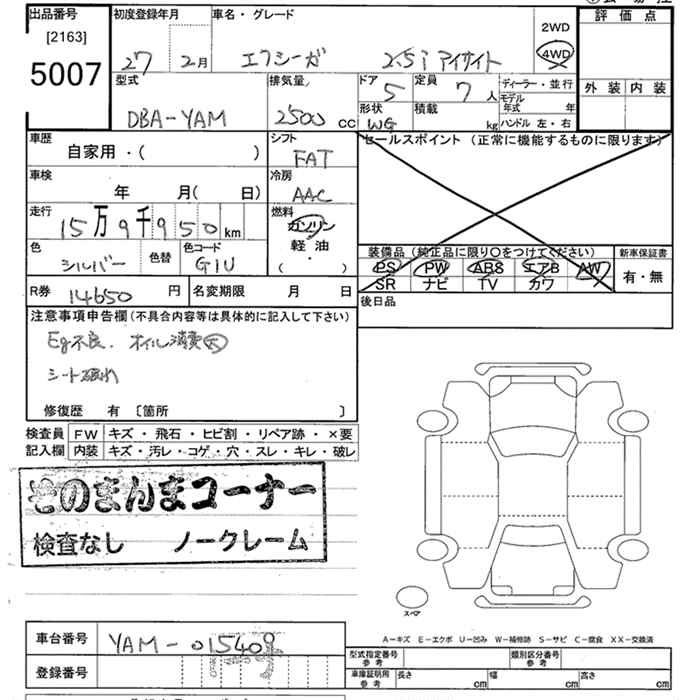 出品番号 初度登録年月 車名・グレード 評価点
[2163]
5007
27 2月 エクシーガ 2.5i アイサイト 2WD 4WD
型式 排気量 ドア 定員 ディーラー・並行 外装 内装
DBA-YAM 2500 cc 5 7人 モデル年式 年
形状 積載 ハンドル 左・右
WG kg
車歴 シフト セールスポイント(正常に機能するものに限ります)
自家用・( ) FAT
車検 冷房
年 月( 日) AAC
走行 燃料
15万9千950km ガソリン
色 色替 色コード 軽油
シルバー G1U ・
( )
装備品(純正品に限り〇をつけてください) 新車保証書
PS PW ABS エアB AW 有・無
SR ナビ TV カワ
R券 14650円 名変期限 月 日 後日品
注意事項申告欄(不具合内容等は具体的に記入して下さい)
Eg不良. オイル消費大
シート破れ
修復歴 有 〔箇所 〕
検査員 FW キズ・飛石・ヒビ割・リペア跡・×要
記入欄 内装 キズ・汚レ・コゲ・穴・スレ・キレ・破レ
そのまんまコーナー
検査なし ノークレーム
スペア
A-キズ E-エクボ U-凹み W-補修跡 S-サビ C-腐食 XX-交換済
車台番号 YAM-015409
型式指定番号 参考 類別区分番号 参考
登録番号
車庫証明用 参考 長さ cm 幅 cm 高さ cm